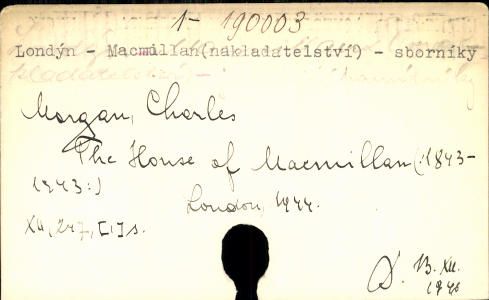 1- 190003
Londýn - Macmillan(nakladatelství) - sborníky
Morgan, Charles
The House of Macmillan(:1843-
1943:)
London, 1944.
XII, 247, [1] s.
D. 13. XII.
1946